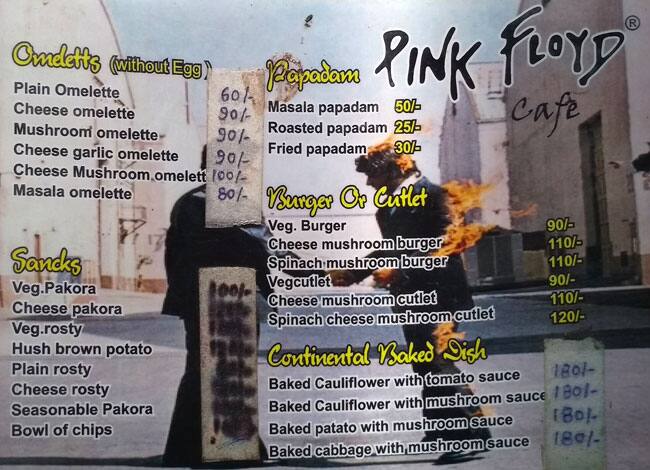 PINK FLOYD ®
Cafe
Omeletts (without Egg)
Plain Omelette 60/-
Cheese omelette 90/-
Mushroom omelette 90/-
Cheese garlic omelette 90/-
Cheese Mushroom omelett 100/-
Masala omelette 80/-
Sancks
Veg.Pakora 100/-
Cheese pakora
Veg.rosty
Hush brown potato
Plain rosty
Cheese rosty
Seasonable Pakora
Bowl of chips
Papadam
Masala papadam 50/-
Roasted papadam 25/-
Fried papadam 30/-
Burger Or Cutlet
Veg. Burger 90/-
Cheese mushroom burger 110/-
Spinach mushroom burger 110/-
Vegcutlet 90/-
Cheese mushroom cutlet 110/-
Spinach cheese mushroom cutlet 120/-
Continental Baked Dish
Baked Cauliflower with tomato sauce 180/-
Baked Cauliflower with mushroom sauce 180/-
Baked patato with mushroom sauce 180/-
Baked cabbage with mushroom sauce 180/-